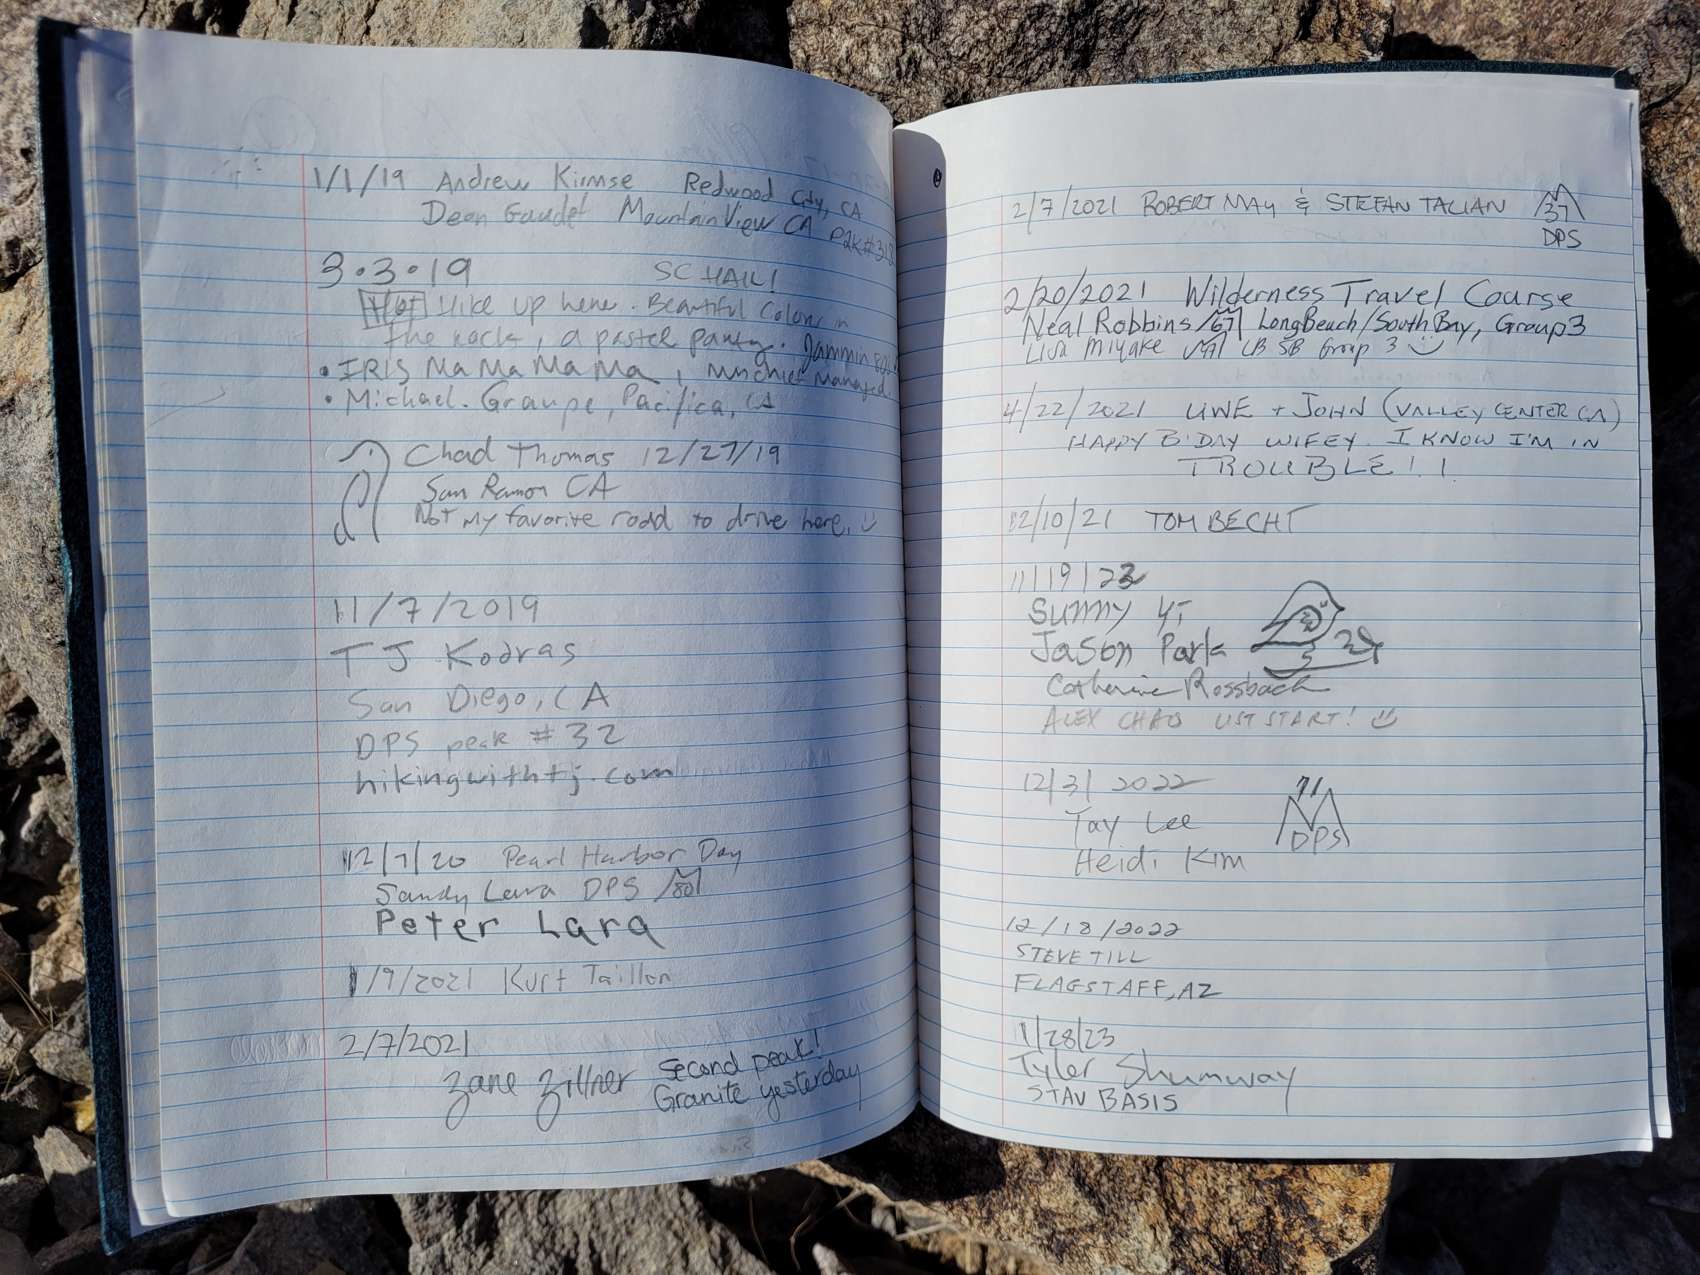 1/1/19 Andrew Kirmse Redwood City, CA
Dean Gaudet Mountain View CA P2K#
3.3.19 SC HAIL!
Hot Hike up here. Beautiful Colors in
the rock, a pastel party. Jammin
• IRIS Ma Ma Ma Ma, Mischief Managed
• Michael. Graupe, Pacifica, CA
Chad Thomas 12/27/19
San Ramon CA
Not my favorite road to drive here.
11/7/2019
TJ Kodras
San Diego, CA
DPS peak #32
hikingwithtj.com
12/7/20 Pearl Harbor Day
Sandy Lara DPS 80
Peter Lara
1/9/2021 Kurt Taillon
2/7/2021
Zane Zillner Second peak!
Granite yesterday
2/7/2021 ROBERT MAY & STEFAN TALIAN 37
DPS
2/20/2021 Wilderness Travel Course
Neal Robbins 67 Long Beach/South Bay, Group 3
Lisa Miyake LB SB Group 3
4/22/2021 UWE + JOHN (VALLEY CENTER CA)
HAPPY B'DAY WIFEY. I KNOW I'M IN
TROUBLE!!
12/10/21 TOM BECHT
11/19/22
Sunny Yi
Jason Park
Catherine Rossback
ALEX CHAO LIST START!
12/3/2022 71
Tay Lee DPS
Heidi Kim
12/18/2022
STEVE TILL
FLAGSTAFF, AZ
1/28/23
Tyler Shumway
STAV BASIS